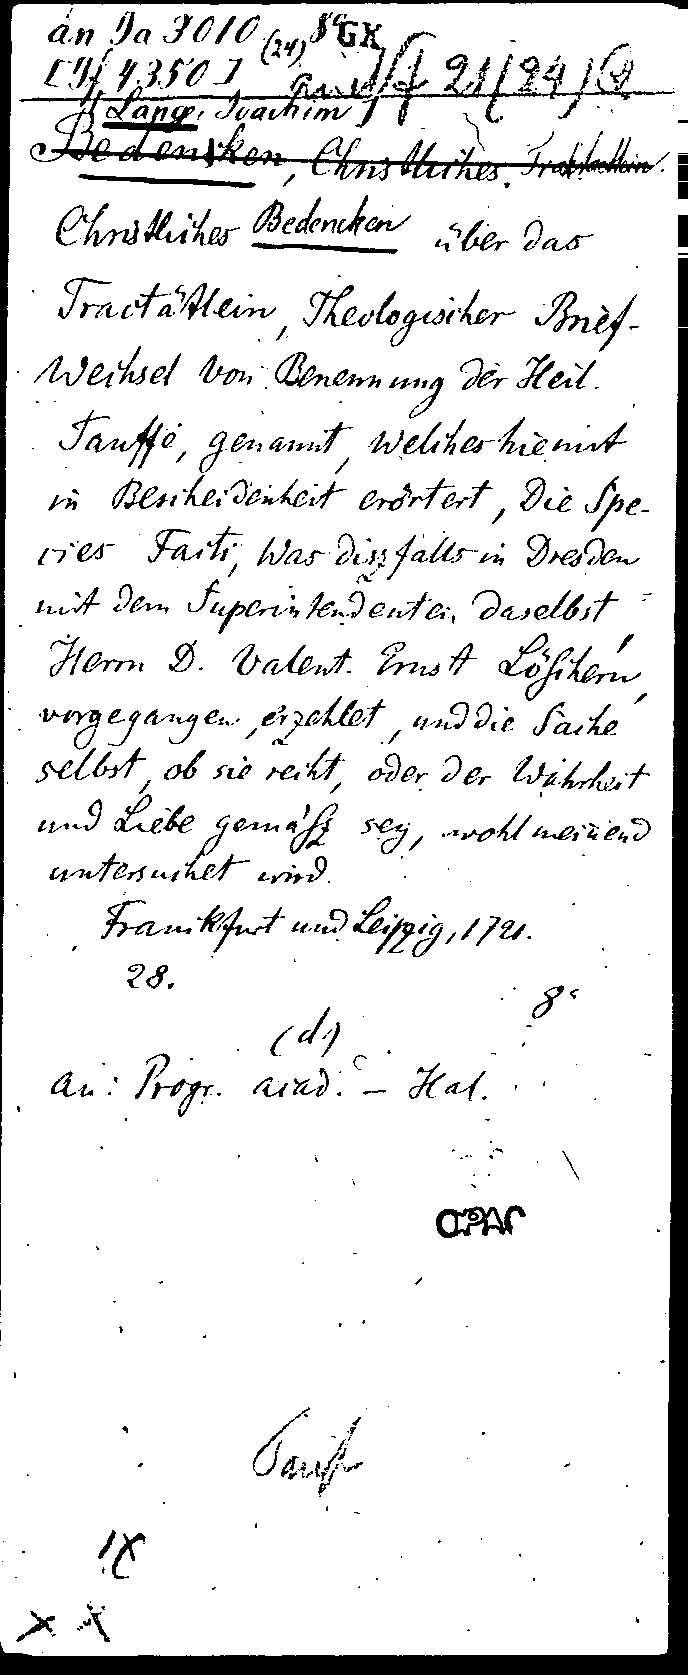 an Ja 3010 (24) 8° GK
[If 4350] and If 21 (24) a
[Lange, Joachim]
Bedencken, Christliches. Tractätlein.
Christliches Bedencken über das
Tractätlein, Theologischer Brief-
Wechsel von Benennung der Heil.
Tauffe, genannt, welches hiemit
in Bescheidenheit erörtert, die Spe-
cies Facti, was dissfalls in Dresden
mit dem Superintendenten daselbst,
Herrn D. Valent. Ernst Löschern,
vorgegangen, erzehlet, und die Sache
selbst, ob sie recht, oder der Wahrheit
und Liebe gemäss sey, wohlmeinend
untersuchet wird.
Franckfurt und Leipzig, 1721.
28.
8°
(d.)
an: Progr. acad. – Hal.
OPAC
Taufe
IX
x x